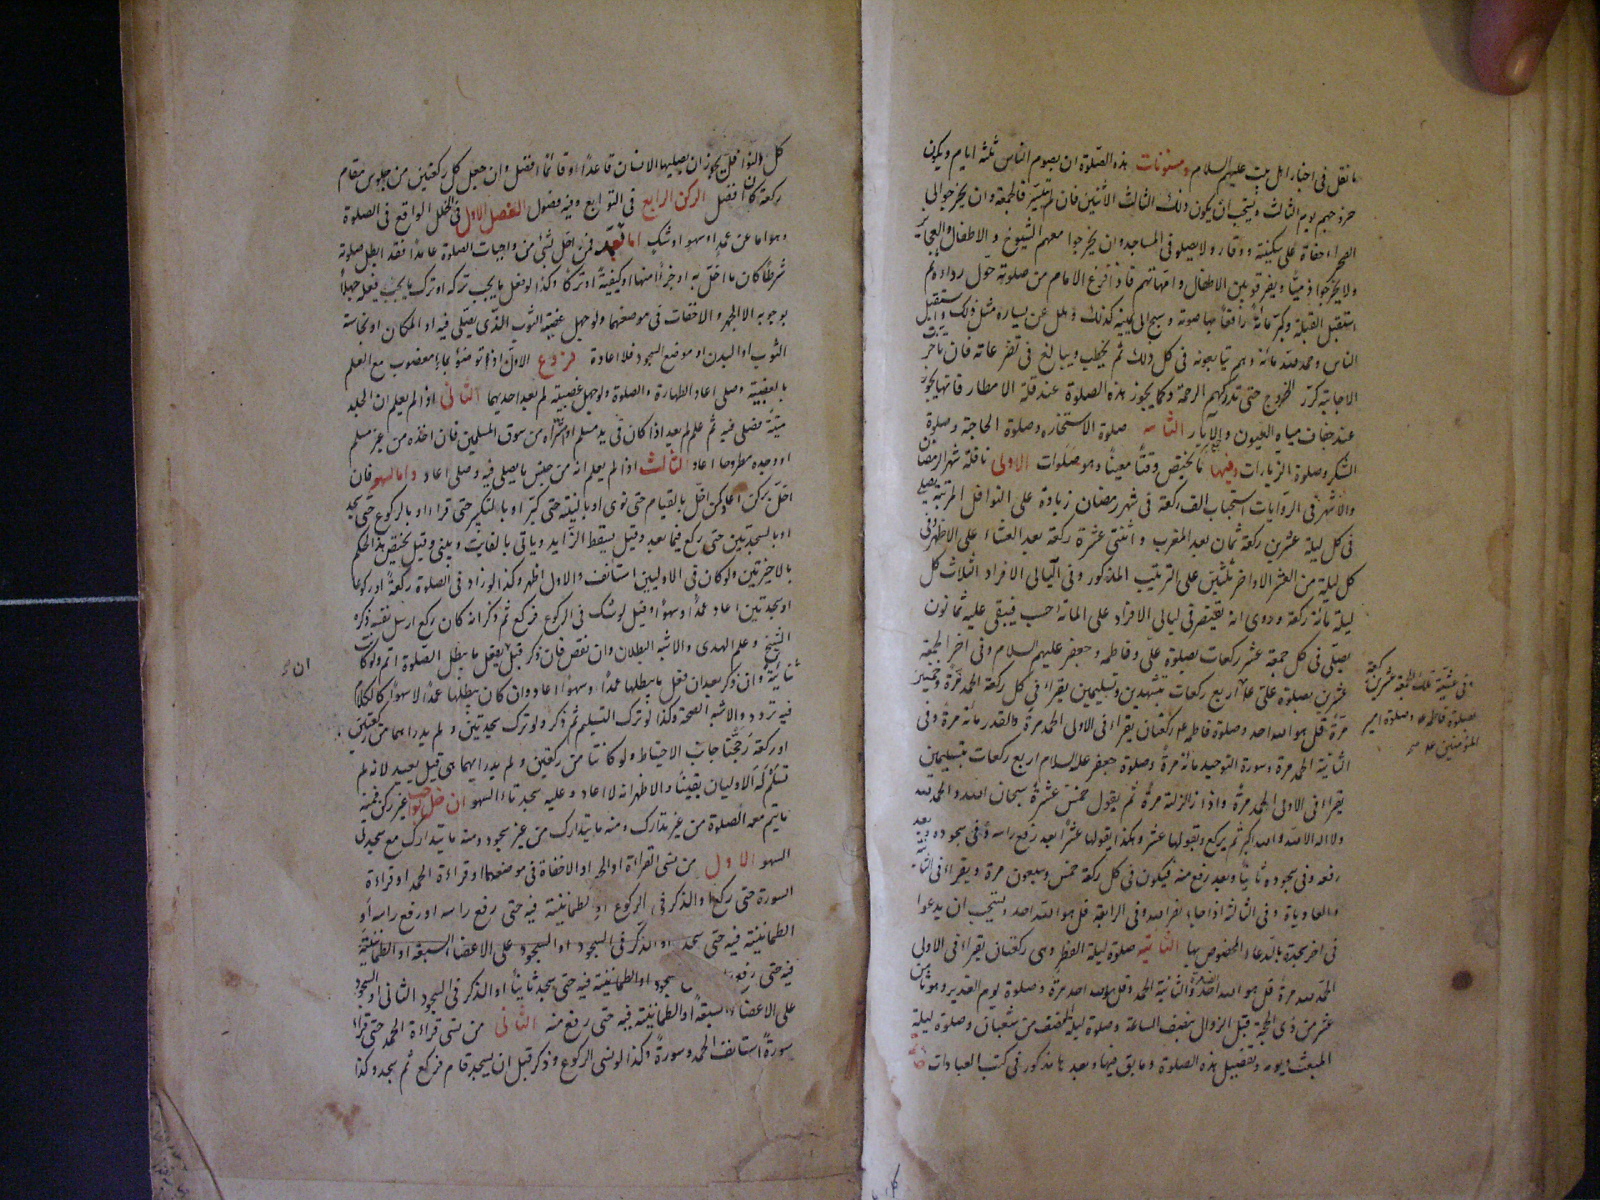 ما نقل فى اخبار اهل بيت عليهم السلام ومسنونات هذه الصلوة ان يصوم الناس ثلثة ايام ويكون
خروجهم يوم الثالث ويستحب ان يكون ذلك الثالث الاثنين فان لم يتيسر فالجمعة وان يخرجوا الى
الصحراء حفاة على سكينة ووقار ولا يصلوا فى المساجد وان يخرجوا معهم الشيوخ والاطفال والعجايز
ولا يخرجوا ذميا ويفرقوا بين الاطفال وامهاتهم فاذا فرغ الامام من صلوته حول رداءه ثم
استقبل القبلة وكبر مائة رافعا بها صوته وسبح الى يمينه كذلك وهلل عن يساره مثل ذلك واستقبل
الناس وحمد الله مائة وهم يتابعونه فى كل ذلك ثم يخطب ويبالغ فى تضرعاته فان تاخرت
الاجابة كرر الخروج حتى تدركهم الرحمة وكما يجوز هذه الصلوة عند قلة الامطار فانها يجوز
عند جفاف مياه العيون والابار الثانية صلوة الاستخاره وصلوة الحاجة وصلوة
الشكر وصلوة الزيارات ومنها ما يختص وقتا معينا وهو صلوات الاولى نافلة شهر رمضان
والاشهر فى الروايات استحباب الف ركعة فى شهر رمضان زيادة على النوافل المرتبة يصلى
فى كل ليلة عشرين ركعة ثمان بعد المغرب واثنتى عشرة ركعة بعد العشاء على الاظهر وفى
كل ليلة من العشر الاواخر ثلثين على الترتيب المذكور وفى الليالى الافراد الثلاث كل
ليلة مائة ركعة وروى انه يقتصر فى ليالى الافراد على المائة حسب فيبقى عليه ثمانون
يصلى فى كل جمعة عشر ركعات بصلوة على وفاطمه وجعفر عليهم السلام وفى اخر الجمعة
عشرين بصلوة على ع اربع ركعات بتشهدين وتسليمين يقراء فى كل ركعة الحمد مرة وخمسين
مرة قل هو الله احد وصلوة فاطمه ع ركعتان يقراء فى الاولى الحمد مرة والقدر مائة مرة وفى
الثانية الحمد مرة وسورة التوحيد مائة مرة وصلوة جعفر عليه السلام اربع ركعات بتسليمين
يقراء فى الاولى الحمد مرة واذا زلزلت مرة ثم يقول خمس عشرة مرة سبحان الله والحمد لله
ولا اله الا الله والله اكبر ثم يركع ويقولها عشرا وهكذا يقولها عشرا بعد رفع راسه وفى سجوده وبعد
رفعه وفى سجوده ثانيا وبعد رفع منه فيكون فى كل ركعة خمس وسبعون مرة ويقراء فى الثانية
والعاديات وفى الثالثة اذا جاء نصر الله وفى الرابعة قل هو الله احد ويستحب ان يدعوا
فى اخر سجدة بالدعاء المخصوص بها الثانيه صلوة ليلة الفطر وهى ركعتان يقراء فى الاولى
الحمد لله مرة قل هو الله احد الف مرة وفى الثانية الحمد وقل هو الله احد مرة وصلوة يوم الغدير وهو ثامن
عشر من ذى الحجة قبل الزوال بنصف الساعة وصلوة ليلة النصف من شعبان وصلوة ليلة
المبعث ويومه وتفصيل هذه الصلوة وما يق فيها وبعدها مذكور فى كتب العبادات
وفى عشية تلك الجمعة عشرين ركعة
بصلوة فاطمه ع وصلوة امير
المؤمنين ع
كل النوافل يجوز ان يصليها الانسان قاعدا وقائما افضل وان جعل كل ركعتين من جلوس مقام
ركعة كان افضل الركن الرابع فى التوابع وفيه فصول الفصل الاول فى الخلل الواقع فى الصلوة
وهو اما عن عمد او سهو او شك اما العمد فمن اخل بشئ من واجبات الصلوة عامدا فقد ابطل صلوته
شرطا كان ما اخل به او جزءا منها او كيفية او تركا وكذا لو فعل ما يجب تركه او ترك ما يجب فعله جهلا
بوجوبه الا الجهر والاخفات فى موضعهما ولو جهل غصبية الثوب الذى يصلى فيه او المكان او نجاسة
الثوب او البدن او موضع السجود فلا اعادة فروع الاول اذا توضؤ بماء مغصوب مع العلم
بالغصبية وصلى اعاد الطهارة والصلوة ولو جهل غصبيته لم يعد احديهما الثانى اذا لم يعلم ان الجلد
ميتة فصلى فيه ثم علم لم يعد اذا كان فى يد مسلم او اشتراه من سوق المسلمين فان اخذه من غير مسلم
او وجده مطروحا اعاد الثالث اذا لم يعلم انه من جنس ما يصلى فيه وصلى اعاد واما السهو فان
اخل بركن اعاد كمن اخل بالقيام حتى نوى او بالنية حتى كبر او بالتكبير حتى قراء او بالركوع حتى سجد
او بالسجدتين حتى ركع فيما بعد وقيل يسقط الزايد وياتى بالفايت ويبنى وقيل يختص هذا الحكم
بالاخيرتين ولو كان فى الاوليين استانف والاول اظهر وكذا لو زاد فى الصلوة ركعة او ركوعا
او سجدتين اعاد عمدا وسهوا وقيل لو شك فى الركوع فركع ثم ذكر انه كان ركع ارسل نفسه ذكره
الشيخ وعلم الهدى والاشبه البطلان وان نقص فان ذكر قبل فعل ما يبطل الصلوة اتم ولو كانت
ثنائية وان ذكر بعد ان فعل ما يبطلها عمدا وسهوا اعاد وان كان يبطلها عمدا لا سهوا كالكلام
فيه تردد والاشبه الصحة وكذا لو ترك التسليم ثم ذكر ولو ترك سجدتين ولم يدر اهما من ركعتين
او ركعة رجحنا جانب الاحتياط ولو كانتا من ركعتين ولم يدر ايهما هى قيل يعيد لانه لم
تسلم له الاوليان يقينا والاظهر انه لا اعادة وعليه سجدتا السهو ان اخل بواجب غير ركن فمنه
ما يتم معه الصلوة من غير تدارك ومنه ما يتدارك من غير سجود ومنه ما يتدارك مع سجدتى
السهو الاول من نسى القراءة او الجهر او الاخفاة فى موضعهما او قراءة الحمد او قراءة
السورة حتى ركع او الذكر فى الركوع او الطمانينة فيه حتى رفع راسه او رفع راسه او
الطمانينة فيه حتى سجد او الذكر فى السجود او السجود على الاعضاء السبعة او الطمانينة
فيه حتى رفع سجود او الطمانينة فيه حتى سجد ثانيا او الذكر فى السجود الثانى او السجود
على الاعضاء السبعة او الطمانينة فيه حتى رفع منه الثانى من نسى قراءة الحمد حتى قراء
سورة استانف الحمد وسورة وكذا لو نسى الركوع وذكر قبل ان يسجد قام فركع ثم سجد وكذا